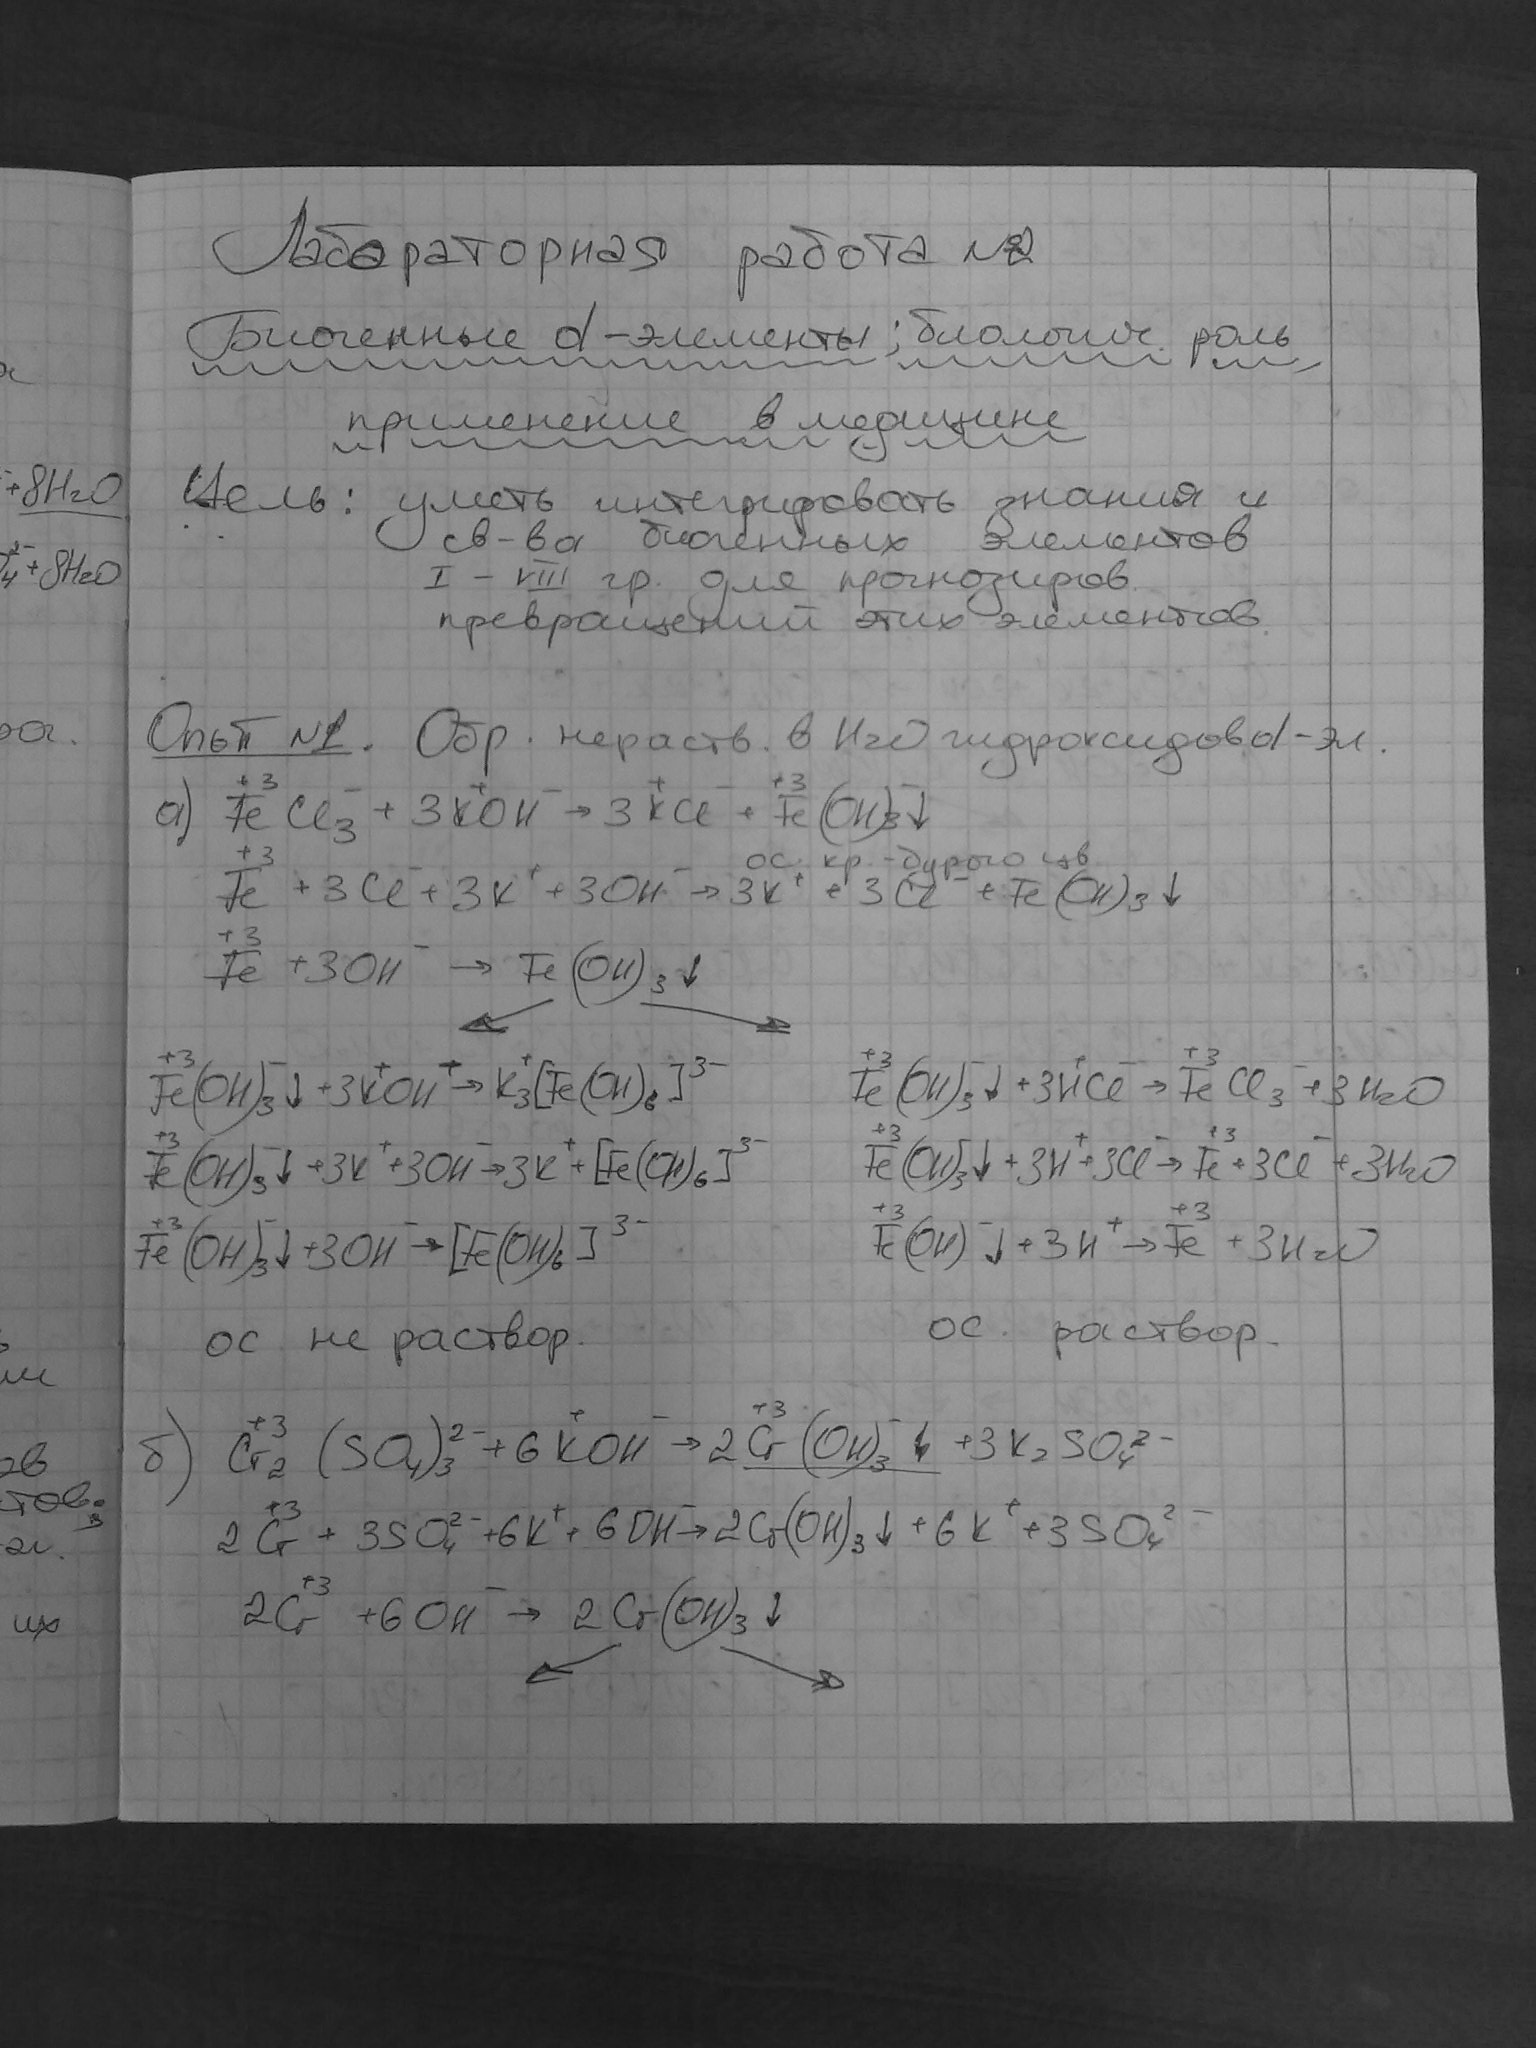 Лабораторная работа №2
Биогенные d-элементы; биологич. роль
применение в медицине
Цель: уметь интегрировать знания и
св-ва биогенных элементов
I - VIII гр. для прогнозиров.
превращений этих элементов.
Опыт №1. Обр. нераств. в H₂O гидроксидов d-эл.
а) Fe⁺³Cl₃⁻ + 3K⁺OH⁻ → 3K⁺Cl⁻ + Fe⁺³(OH)₃⁻↓
ос. кр.-бурого цв
Fe⁺³ + 3Cl⁻ + 3K⁺ + 3OH⁻ → 3K⁺ + 3Cl⁻ + Fe(OH)₃↓
Fe⁺³ + 3OH⁻ → Fe(OH)₃↓
Fe⁺³(OH)₃⁻↓ + 3K⁺OH⁺ → K₃⁺[Fe(OH)₆]³⁻
Fe⁺³(OH)₃⁻↓ + 3K⁺ + 3OH⁻ → 3K⁺ + [Fe(OH)₆]³⁻
Fe⁺³(OH)₃⁻↓ + 3OH⁻ → [Fe(OH)₆]³⁻
ос не раствор.
Fe⁺³(OH)₃⁻↓ + 3H⁺Cl⁻ → Fe⁺³Cl₃⁻ + 3H₂O
Fe⁺³(OH)₃⁻↓ + 3H⁺ + 3Cl⁻ → Fe⁺³ + 3Cl⁻ + 3H₂O
Fe⁺³(OH)⁻↓ + 3H⁺ → Fe⁺³ + 3H₂O
ос. раствор.
б) Cr₂⁺³(SO₄)₃²⁻ + 6K⁺OH⁻ → 2Cr⁺³(OH)₃⁻↓ + 3K₂SO₄²⁻
2Cr⁺³ + 3SO₄²⁻ + 6K⁺ + 6OH⁻ → 2Cr(OH)₃↓ + 6K⁺ + 3SO₄²⁻
2Cr⁺³ + 6OH⁻ → 2Cr(OH)₃↓
+8H₂O
+8H₂O
их